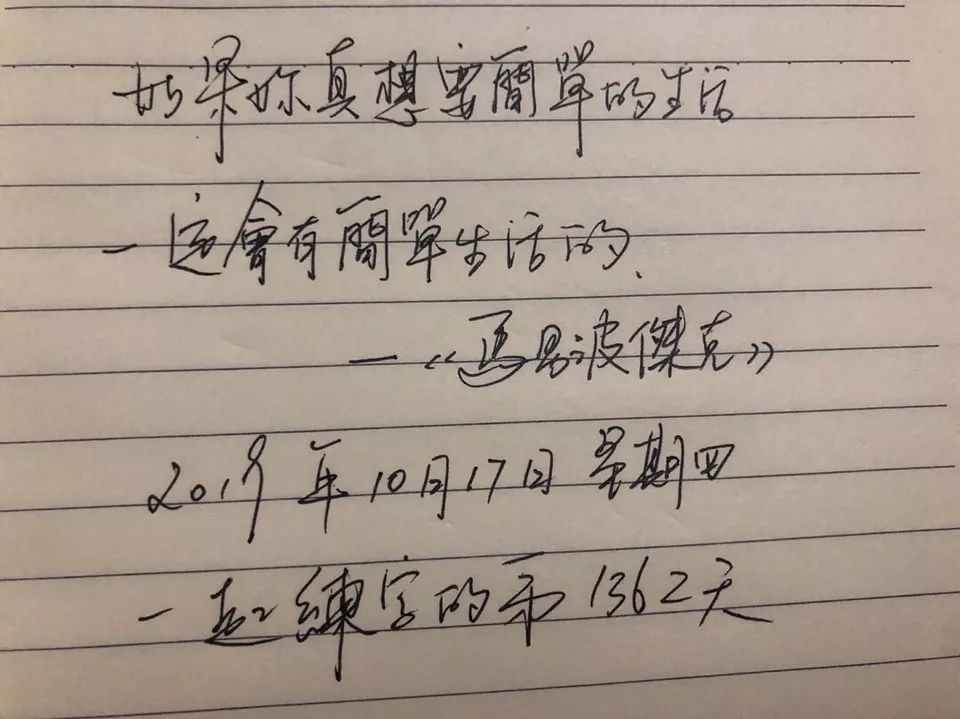 如果你真想要簡單的生活
一定會有簡單生活的.
—《馬男波傑克》
2019年10月17日 星期四
一起練字的第1362天